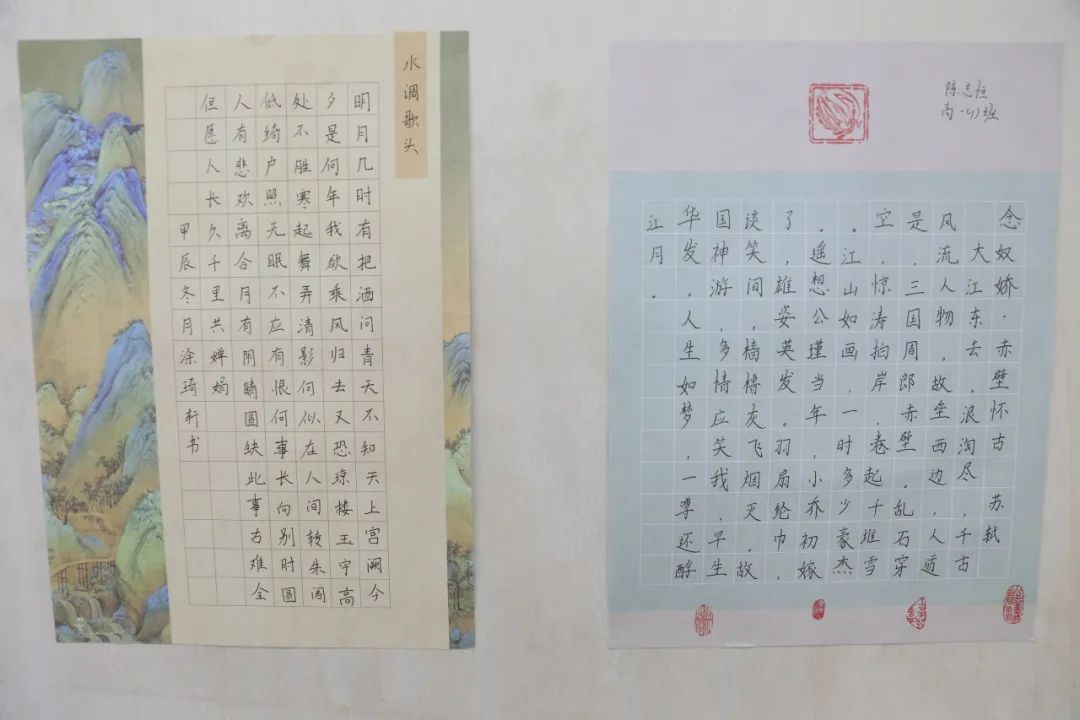 水调歌头
明月几时有把酒问青天不知天上宫阙今
夕是何年我欲乘风归去又恐琼楼玉宇高
处不胜寒起舞弄清影何似在人间转朱阁
低绮户照无眠不应有恨何事长向别时圆
人有悲欢离合月有阴晴圆缺此事古难全
但愿人长久千里共婵娟
甲辰冬月涂琦轩书
陈志恒
高一班
念奴娇·赤壁怀古 苏轼
大江东去，浪淘尽，千古
风流人物，故垒西边，人道
是，三国周郎赤壁，乱石穿
空，惊涛拍岸，卷起千堆雪
。江山如画，一时多少豪杰
。遥想公瑾当年，小乔初嫁
了，雄姿英发。羽扇纶巾，
谈笑间，樯橹灰飞烟灭，故
国神游，多情应笑我，早生
华发，人生如梦，一尊还酹
江月。